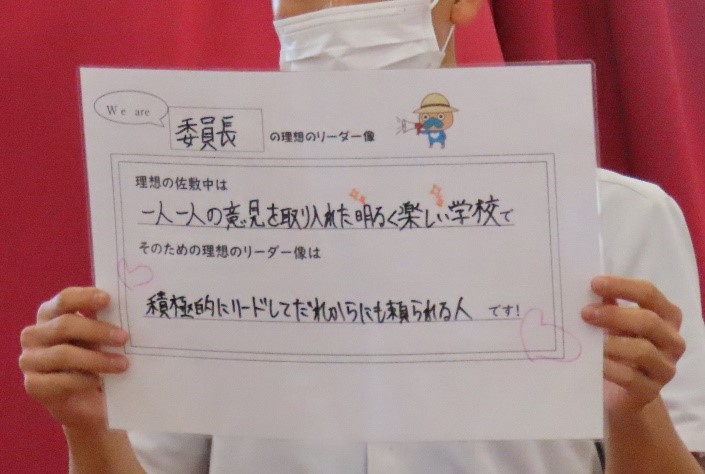 We are
委員長 の理想のリーダー像
理想の佐敷中は
一人一人の意見を取り入れた明るく楽しい学校で
そのための理想のリーダー像は
積極的にリードしてだれからにも頼られる人 です!